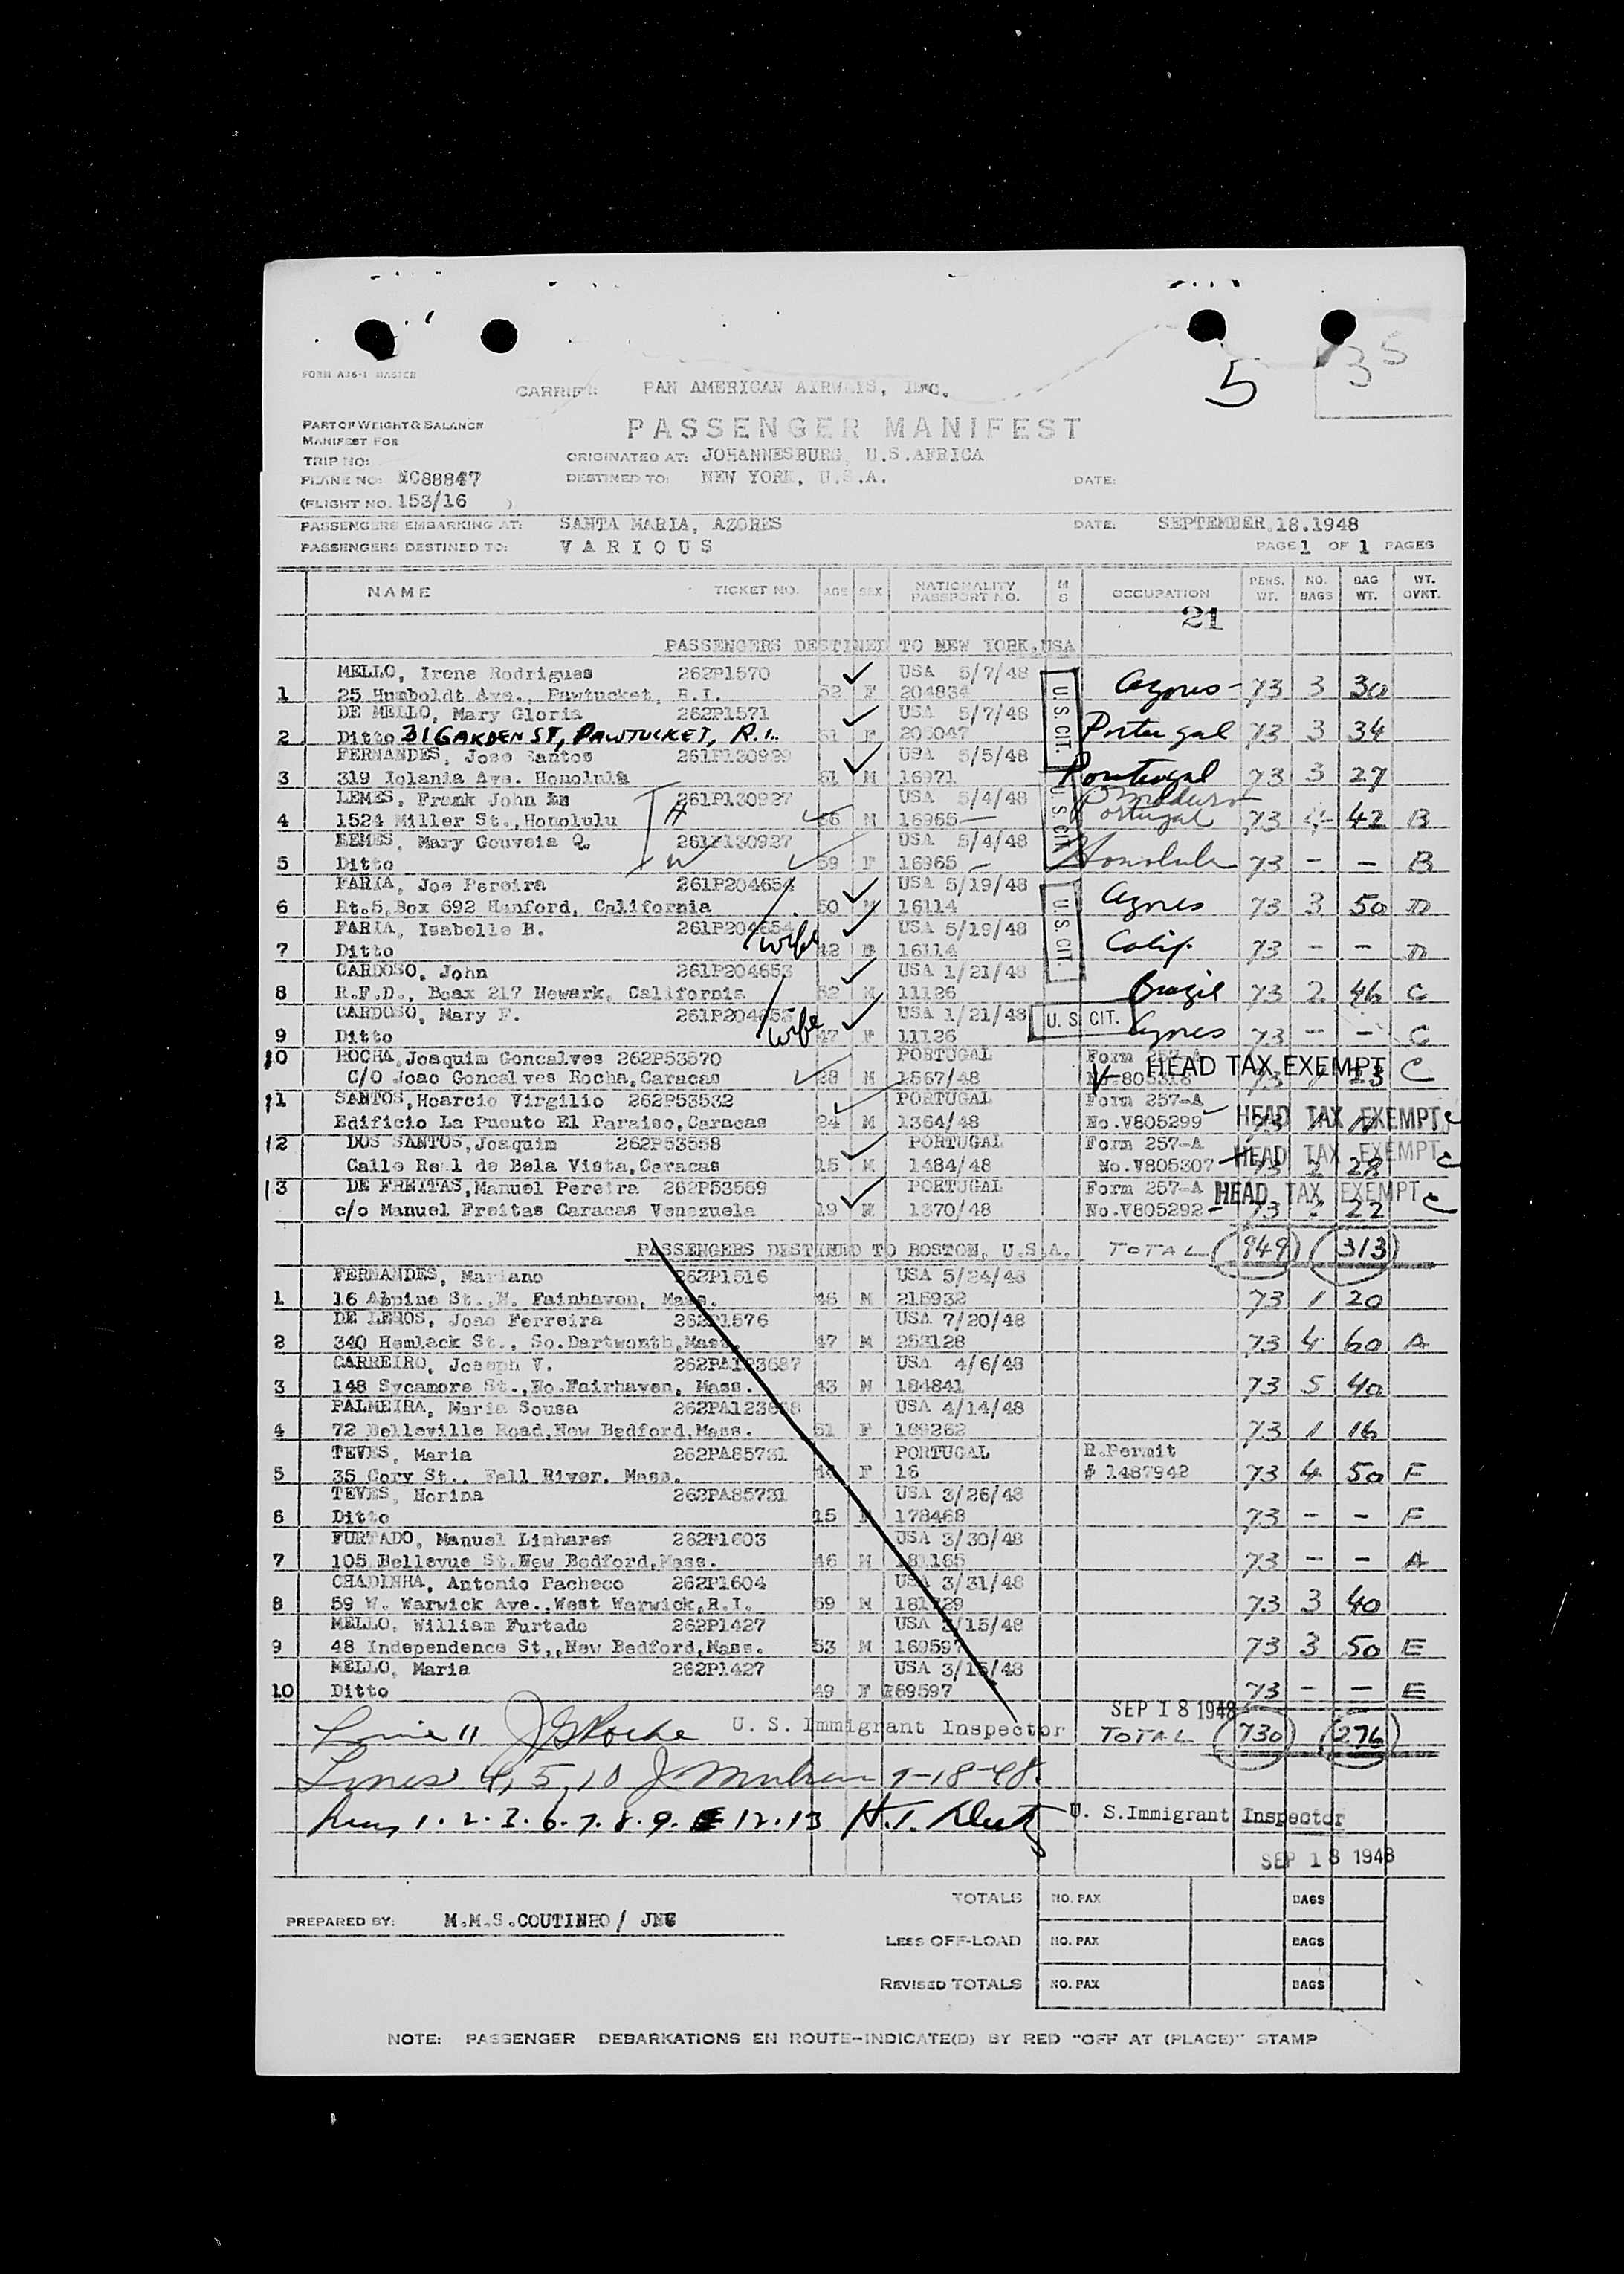 5
35
FORM A36-1 MASTER
CARRIER: PAN AMERICAN AIRWAYS, INC.
PART OF WEIGHT & BALANCE
MANIFEST FOR
PASSENGER MANIFEST
TRIP NO: ORIGINATED AT: JOHANNESBURG, U.S.AFRICA
PLANE NO: NC88847 DESTINED TO: NEW YORK, U.S.A. DATE:
(FLIGHT NO. 153/16 )
PASSENGERS EMBARKING AT: SANTA MARIA, AZORES DATE: SEPTEMBER.18.1948
PASSENGERS DESTINED TO: VARIOUS PAGE 1 OF 1 PAGES
NAME TICKET NO. AGE SEX NATIONALITY PASSPORT NO. M S OCCUPATION PERS. WT. NO. BAGS BAG WT. WT. OVNT.
21
PASSENGERS DESTINED TO NEW YORK,USA
MELLO, Irene Rodrigues 262P1570 USA 5/7/48
1 25 Humboldt Ave., Pawtucket, R.I. 52 F 204834 U.S. CIT. Azores- 73 3 30
DE MELLO, Mary Gloria 262P1571 USA 5/7/48
2 Ditto 31 GARDEN ST, PAWTUCKET, R.I. 51 F 205047 Portugal 73 3 34
FERNANDES, Jose Santos 261P130929 USA 5/5/48
3 319 Iolania Ave. Honolulu 61 M 16971 Portugal 73 3 27
LEMES, Frank John 261P130927 USA 5/4/48
4 1524 Miller St.,Honolulu H 66 M 16965 U.S. CIT. Portugal 73 4 42 B
LEMES, Mary Gouveia Q. 261P130927 USA 5/4/48
5 Ditto W 59 F 16965 Honolulu 73 - - B
FARIA, Joe Pereira 261P204654 USA 5/19/48
6 Rt.5,Box 692 Hanford, California 50 M 16114 U.S. CIT. Azores 73 3 50 D
FARIA, Isabelle B. 261P204654 USA 5/19/48
7 Ditto wife 42 16114 Calif. 73 - - D
CARDOSO, John 261P204653 USA 1/21/48
8 R.F.D., Boax 217 Newark, California 52 M 11126 Brazil 73 2 46 C
CARDOSO, Mary F. 261P204653 USA 1/21/48 U.S. CIT.
9 Ditto wife 47 F 11126 Azores 73 - - C
10 ROCHA,Joaquim Goncalves 262P53570 PORTUGAL Form 257-A
C/O Joao Goncalves Rocha,Caracas 28 M 1567/48 No. HEAD TAX EXEMPT C
11 SANTOS,Hoarcio Virgilio 262P53532 PORTUGAL Form 257-A
Edificio La Puento El Paraiso,Caracas 24 M 1364/48 No.V805299 HEAD TAX EXEMPT C
12 DOS SANTOS,Joaquim 262P53558 PORTUGAL Form 257-A
Calle Real de Bela Vista,Caracas 15 M 1484/48 No.V805307 HEAD TAX EXEMPT 73 28 C
13 DE FREITAS,Manuel Pereira 262P53559 PORTUGAL Form 257-A HEAD TAX EXEMPT C
c/o Manuel Freitas Caracas Venezuela 19 M 1370/48 No.V805292 73 - 22
PASSENGERS DESTINED TO BOSTON, U.S.A. TOTAL 949 313
FERNANDES, Mariano 262P1516 USA 5/24/48
1 16 Alpine St.,N. Fainhaven, Mass. 46 M 215932 73 1 20
DE LEMOS, Joao Ferreira 262P1576 USA 7/20/48
2 340 Hemlack St., So.Dartwonth,Mass. 47 M 252128 73 4 60 A
CARREIRO, Joseph V. 262PA123687 USA 4/6/48
3 148 Sycamore St.,No.Fairhaven, Mass. 43 M 184841 73 5 40
PALMEIRA, Maria Sousa 262PA123688 USA 4/14/48
4 72 Belleville Road,New Bedford,Mass. 51 F 189262 73 1 16
TEVES, Maria 262PA85731 PORTUGAL R.Permit
5 35 Cory St., Fall River, Mass. F 16 # 1487942 73 4 50 F
TEVES, Norina 262PA85731 USA 3/26/48
6 Ditto 15 178468 73 - - F
FURTADO, Manuel Linhares 262P1603 USA 3/30/48
7 105 Bellevue St.New Bedford,Mass. 46 M 181165 73 - - A
CHADINHA, Antonio Pacheco 262P1604 USA 3/31/48
8 59 W. Warwick Ave.,West Warwick,R.I. 59 M 181729 73 3 40
MELLO, William Furtado 262P1427 USA 3/15/48
9 48 Independence St.,New Bedford,Mass. 53 M 169597 73 3 50 E
MELLO, Maria 262P1427 USA 3/15/48
10 Ditto 49 F 169597 73 - - E
SEP 18 1948
Line 11 J G Roche U. S. Immigrant Inspector TOTAL 730 276
Lines 4, 5, 10 9-18-48.
1. 2. 3. 6. 7. 8. 9. 12. 13 H.T. U. S.Immigrant Inspector
SEP 18 1948
TOTALS NO. PAX BAGS
PREPARED BY: M.M.S.COUTINHO/ JNG
LESS OFF-LOAD NO. PAX BAGS
REVISED TOTALS NO. PAX BAGS
NOTE: PASSENGER DEBARKATIONS EN ROUTE-INDICATE(D) BY RED "OFF AT (PLACE)" STAMP